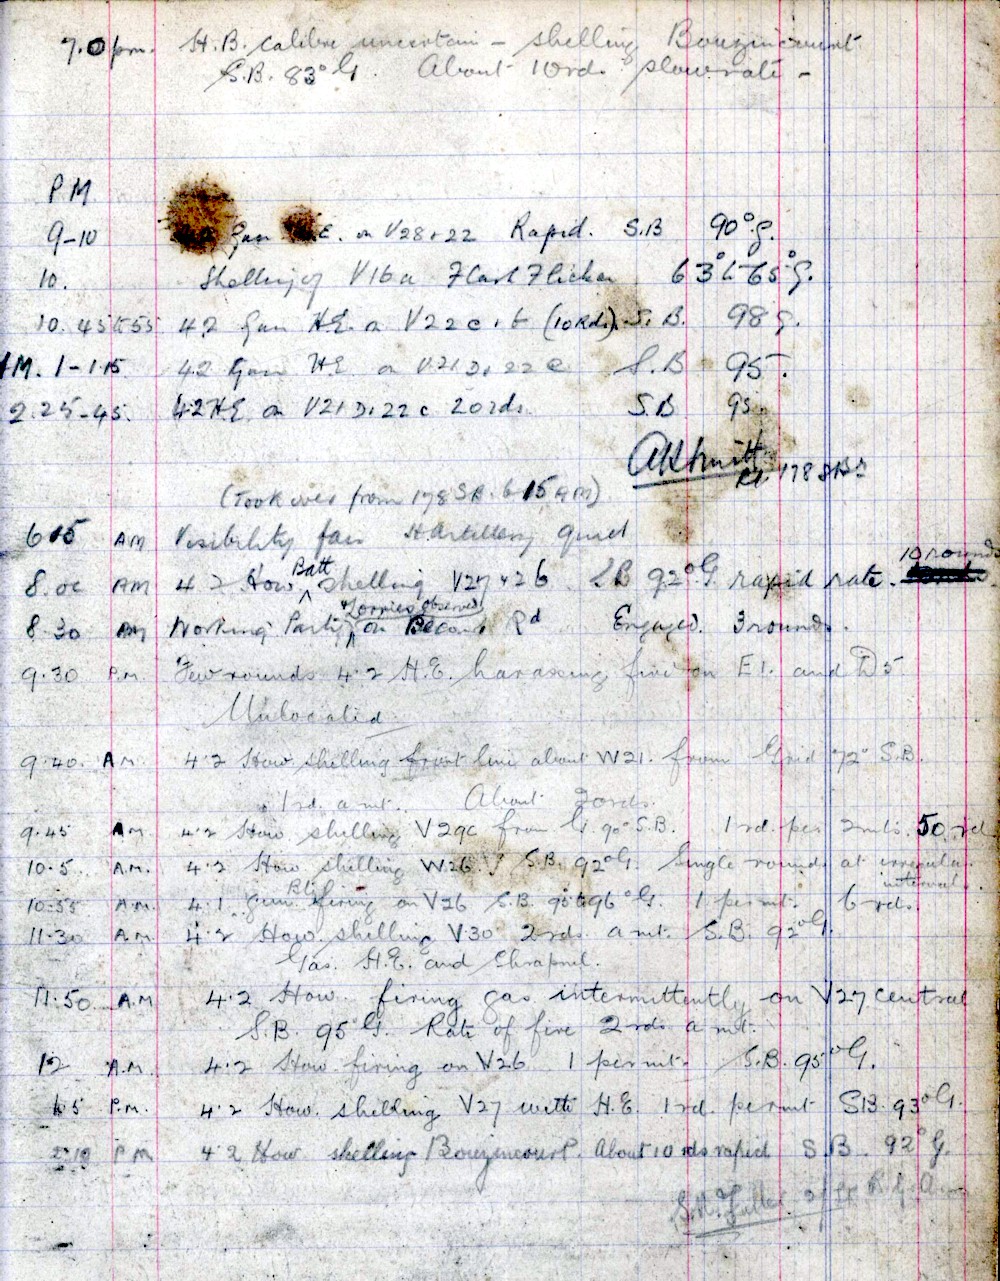 7.0 pm. H.B. calibre uncertain – shelling Bouzincourt
S.B. 83° G. About 10 rds slow rate –
P M
9-10 Gun H.E. on V28 & 22 Rapid. S.B 90° g.
10. Shelling of V16a Flash Flicker 63° to 65° g.
10.45 to 55 4.2 Gun H.E. on V22 c & b (10 Rds). S.B. 98 g.
AM. 1-1.15 42 Gun H.E. on V21 D, 22 c S.B 95.
2.25-45. 4.2 H.E. on V21 D, 22 c 20 rds. S.B 95.
178
(Took over from 178 S.B. 6 15 AM)
6 15 AM Visibility fair H Artillery quiet
10 rounds
8.00 AM 4 2 How Batt shelling V27 & 26 S.B 92° G. rapid rate.
& Lorries observed
8.30 AM Working Party on Becourt Rd Engaged. 3 rounds.
9.30 P.M. Few rounds 4.2 H.E. harassing fire on E1. and D5
Unlocated
9.40. A.M. 4.2 How shelling front line about W21. from Grid 72° S.B.
1 rd. a mt. About 20 rds.
9.45 A.M. 4.2 How shelling V29c from G. 90° S.B. 1 rd. per 2 mts. 50 rds
10.5 A.M. 4.2 How shelling W26. S.B. 92° G. Single rounds at irregular
intervals.
10.55 A.M. 4.1 gun Bty firing on V26 S.B. 95 to 96° G. 1 per mt. 6 rds.
11.30 A.M. 4.2 How. shelling V.30 2 rds. a mt. S.B. 92° G.
Gas. H.E. and Shrapnel.
11.50 A.M 4.2 How. firing gas intermittently on V27 central
S.B. 95° G. Rate of fire 2 rds a mt.
12 A.M. 4.2 How. firing on V26 1 per mt. S.B. 95° G.
1.5 P.M. 4.2 How. shelling V27 with H.E. 1 rd. per mt S.B. 93° G.
2.10 P M 4.2 How shelling Bouzincourt. About 10 rds rapid S.B. 92° G.
Fuller 2/Lt R.G.A.